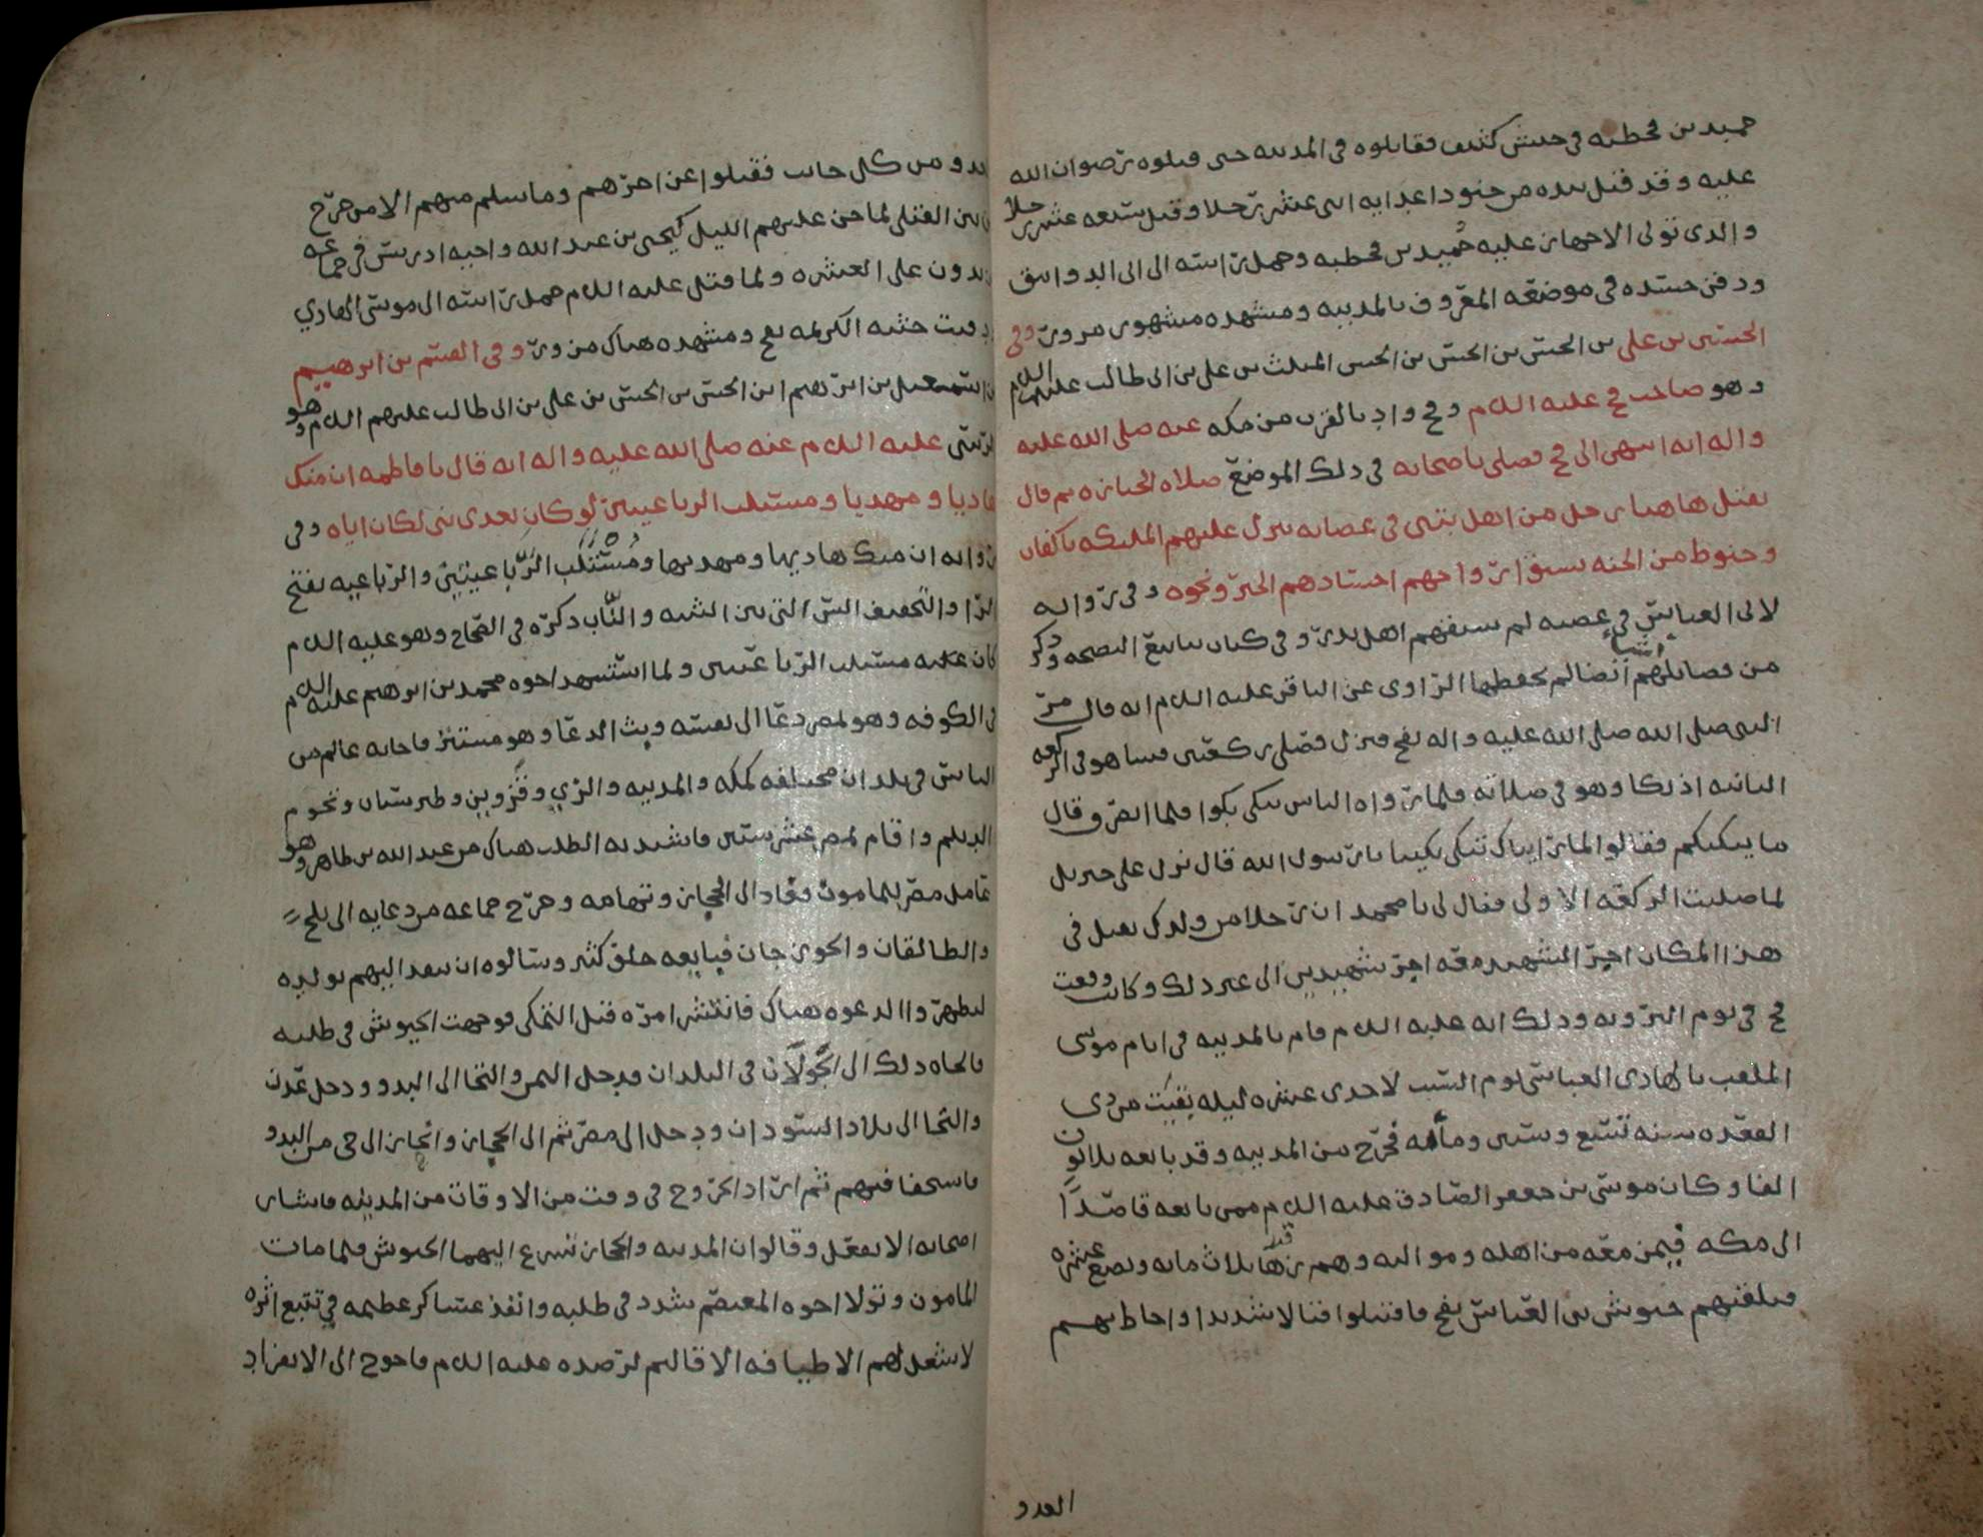 حميد بن قحطبه في جيش كثيف فقاتلوه في المدينه حتى قتلوه رضوان الله
عليه وقد قتل بيده من جنود اعدايه اثنى عشر رجلا وقيل سبعه عشر رجلا
والذي تولى الاجهاز عليه حُميد بن قحطبه وحمل راسه الى ابي الدوانيق
ودفن جسده في موضعه المعروف بالمدينه ومشهده مشهور مزور وفي
الحسين بن علي بن الحسن بن الحسن بن الحسن المثلث بن علي بن ابي طالب عليهم السلام
وهو صاحب فخ عليه السلام وفخ واد بالقرب من مكه عنه صلى الله عليه
واله انه انتهى الى فخ فصلى باصحابه في ذلك الموضع صلاه الجنازه ثم قال
يقتل هاهنا رجل من اهل بيتي في عصابه ينزل عليهم المليكه باكفان
وحنوط من الجنه يسبق ارواحهم اجسادهم الخبر ونحوه وفي روايه
لابي العباس في عصبه لم يسبقهم اهل بدر وفي كتاب ينابيع النصيحه وذكر
من فضايلهم اشيا ايضا لم يحفظها الراوي عن الباقر عليه السلام انه قال مر
النبي صلى الله صلى الله عليه واله بفخ فنزل فصلى ركعتين فبينا هو في الركعه
الثانيه اذ بكا وهو في صلاته فلما رواه الناس يبكي بكوا فلما انصرف قال
ما يبكيكم فقالوا لما رايناك تبكي بكينا يا رسول الله قال نزل علي جبريل
لما صليت الركعه الاولى فقال لي يا محمد ان رجلا من ولدك يقتل في
هذا المكان اجر الشهيد معه اجر شهيدين الى غير ذلك وكانت وقعت
فخ في يوم الترويه وذلك انه عليه السلام قام بالمدينه في ايام موسى
الملقب بالهادي العباسي يوم السبت لاحدى عشره ليله بقيت من ذي
القعده سنه تسع وستين ومأه فخرج من المدينه وقد بايعه ثلاثون
الفا وكان موسى بن جعفر الصادق عليه السلام ممن بايعه قاصدًا
الى مكه فيمن معه من اهله ومواليه وهم زها ثلاث مايه وبضع عشره
فتلقتهم جيوش بني العباس بفخ فاقتتلوا قتالا شديدا واحاط بهم
العدو
العدو من كل جانب فقتلوا عن اخرهم وما سلم منهم الا من خرج
من بين القتلى لما جن عليهم الليل كيحيى بن عبد الله واخيه ادريس في جماعه
يزيدون على العشره ولما قتل عليه السلام حمل راسه الى موسى الهادي
ودفنت جثته الكريمه بفخ ومشهده هناك مزور وفي القسم بن ابرهيم
بن اسمعيل بن ابرهيم ابن الحسن بن الحسن بن علي بن ابي طالب عليهم السلام وهو
الرسي عليه السلام عنه صلى الله عليه واله انه قال يا فاطمه ان منك
هاديا ومهديا ومستلب الرباعيتين لو كان بعدي نبي لكان اياه وفي
روايه ان منك هاديها ومهديها ومُسْتَلَب الرَّبَاعيتين والرباعيه بفتح
الرا والتخفيف السن التي بين الثنيه والنَّاب ذكره في الصحاح وهو عليه السلام
كان عليه مستلب الرباعيتين ولما استشهد اخوه محمد بن ابرهيم عليه السلام
في الكوفه وهو بمصر دعا الى نفسه وبث الدعا وهو مستتر فاجابه عالم من
الناس في بلدان مختلفه كمكه والمدينه والري وقزوين وطبرستان وتخوم
الديلم واقام بمصر عشر سنين فاشتد به الطلب هناك من عبد الله بن طاهر وهو
عامل مصر للمامون فعاد الى الحجاز وتهامه وخرج جماعه من دعايه الى بلخ
والطالقان والجوزجان فبايعه خلق كثير وسالوه ان ينفد اليهم بولده
ليظهروا الدعوه هناك فانتشر امره قبل التمكن فوجهت الجيوش في طلبه
فالجاه ذلك الى الجَوَلَان في البلدان فدخل اليمن والتجا الى البدو ودخل عدن
والتجا الى بلاد السودان ودخل الى مصر ثم الى الحجاز وانحاز الى حي من البدو
فاستخفا فيهم ثم اراد الخروج في وقت من الاوقات من المدينه فاشار
اصحابه الا يفعل وقالوا ان المدينه والحجاز تسرع اليهما الجيوش فلما مات
المامون وتولا اخوه المعتصم شدد في طلبه وانفذ عساكر عظيمه في تتبع اثره
لا شغل لهم الا طيافه الاقاليم لرصده عليه السلام فاحوج الى الانفراد